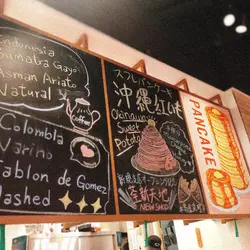 Indonesia
Sumatra Gayo
Asman Ariato
Natural
Coffee
Colombla
Narino
Tablon de Gomez
Washed
スフレパンケーキ
沖縄紅芋
Okinawa
Sweet
Potato
新天地
NEW SHOP
PANCAKE